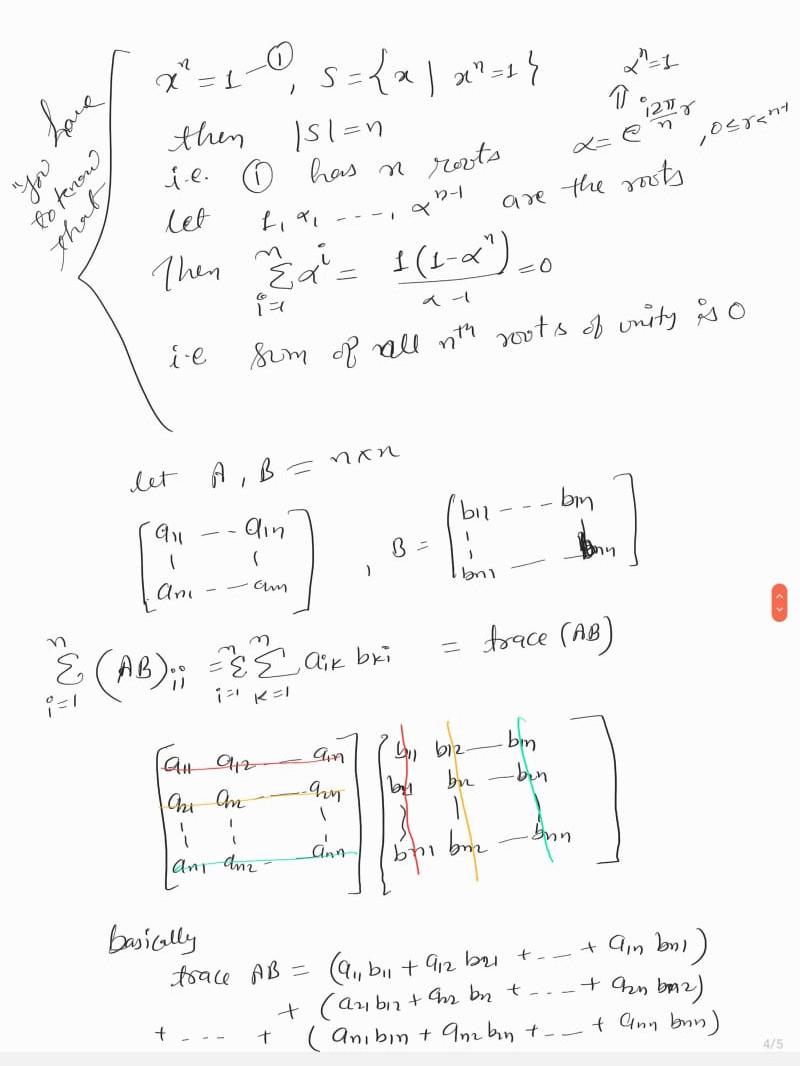 "You have
to know
that"
xⁿ = 1 —①, S = {x | xⁿ = 1}
αⁿ = 1
⇑
then |S| = n
α = e^(i2π/n r), 0 ≤ r < n-1
i.e. ① has n roots
let 1, α, ----, αⁿ⁻¹ are the roots
Then Σ_{i=1}^{n} αⁱ = 1(1-αⁿ)/(α-1) = 0
i.e sum of all nᵗʰ roots of unity is 0
let A, B = n×n
[a11 -- a1n
an1 -- ann]
, B = [b11 --- b1n
bn1 — bnn]
Σ_{i=1}^{n} (AB)ii = Σ_{i=1}^{n} Σ_{k=1}^{n} aik bki = trace (AB)
[a11 a12 — a1n] [b11 b12 — b1n]
a21 a22 --- a2n b21 b22 — b2n
an1 an2 - ann bn1 bn2 — bnn
basically
trace AB = (a11 b11 + a12 b21 + ... + a1n bn1)
+ (a21 b12 + a22 b22 + .... + a2n bn2)
+ ---- + (an1 b1n + an2 b2n + ... + ann bnn)
4/5